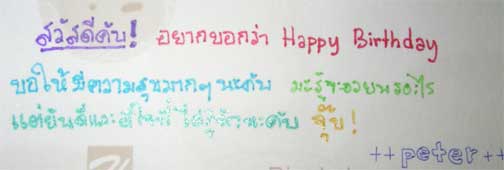 สวัสดีคับ! อยากบอกว่า Happy Birthday
ขอให้มีความสุขมากๆนะคับ มะรู้จะอวยพรอะไร
แต่ยินดีและดีใจที่ได้รู้จักนะคับ จุ๊บ!
++peter++